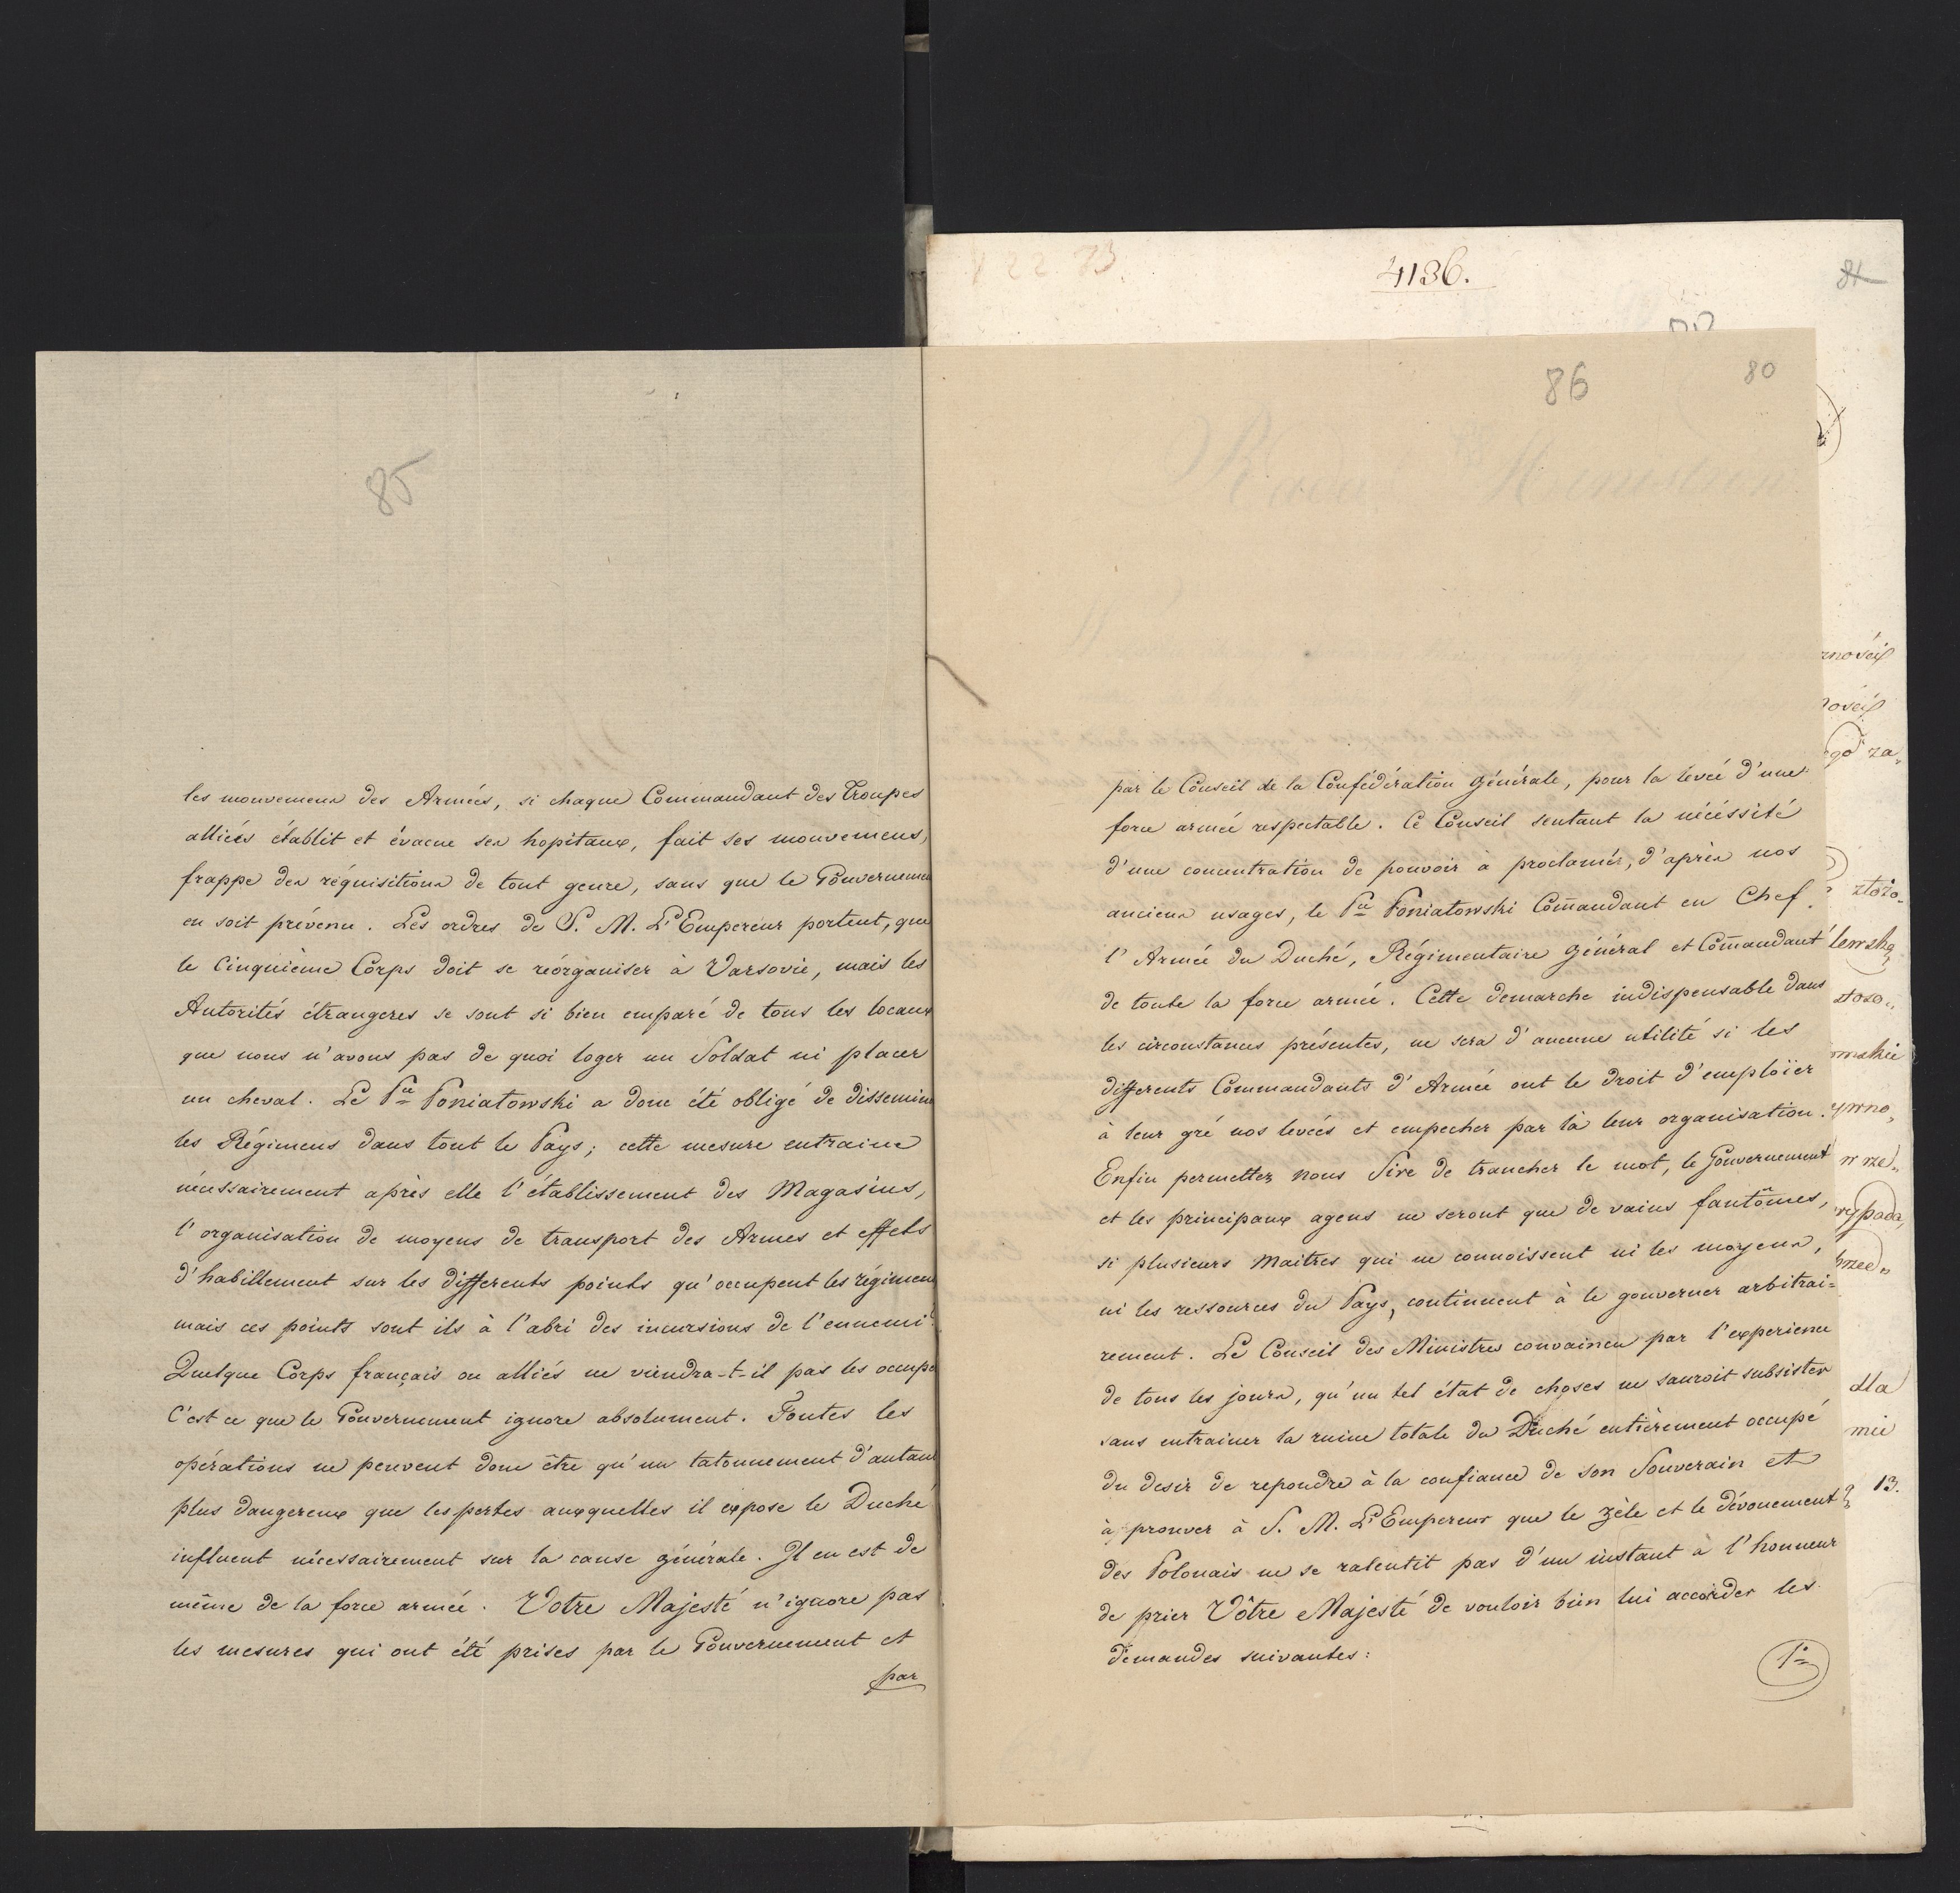 85
les mouvemens des Armées, si chaque Commandant des Troupes
alliées établit et évacue ses hopitaux, fait ses mouvemens,
frappe des réquisitions de tout genre, sans que le Gouvernemen
en soit prévenu. Les ordres de S. M. L'Empereur portent, que
le Cinquième Corps doit se réorganiser à Varsovie, mais les
Autorités étrangeres se sont si bien emparé de tous les locaux
que nous n'avons pas de quoi loger un Soldat ni placer
un cheval. Le Pce Poniatowski a donc été obligé de dissemin
les Régimens dans tout le Pays; cette mesure entraine
nécessairement après elle l'établissement des Magasins,
l'organisation de moyens de transport des Armes et effets
d'habillement sur les differents points qu'occupent les régimen
mais ces points sont ils à l'abri des incursions de l'ennemi?
Quelque Corps français ou alliés ne viendra-t-il pas les occupe
C'est ce que le Gouvernement ignore absolument. Toutes les
opérations ne peuvent donc être qu'un tatonnement d'autant
plus dangereux que les pertes auxquelles il expose le Duché
influent nécessairement sur la cause générale. Il en est de
même de la force armée. Votre Majesté n'ignore pas
les mesures qui ont été prises par le Gouvernement et
par
4136.
86
80
par le Conseil de la Confédération Générale, pour la levée d'une
force armée respectable. Ce Conseil sentant la nécéssité
d'une concentration de pouvoir à proclamér, d'après nos
anciens usages, le Pce Poniatowski Com̄andant en Chef
l'Armée du Duché, Régimentaire Général et Com̄andant
de toute la force armée. Cette demarche indispensable dans
les circonstances présentes, ne sera d'aucune utilité si les
differents Commandants d'Armée ont le droit d'emploïer
à leur gré nos levées et empecher par là leur organisation.
Enfin permettez nous Sire de trancher le mot, le Gouvernement
et les principaux agens ne seront que de vains fantômes,
si plusieurs Maitres qui ne connoissent ni les moyens,
ni les ressources du Pays, continuent à le gouverner arbitrai=
rement. Le Conseil des Ministres convaincu par l'experience
de tous les jours, qu'un tel état de choses ne sauroit subsister
sans entrainer la ruine totale du Duché entièrement occupé
du desir de repondre à la confiance de son Souverain et
à prouver à S. M. L'Empereur que le zèle et le dévouement
des Polonais ne se ralentit pas d'un instant à l'honneur
de prier Vôtre Majesté de vouloir bien lui accorder les
demandes suivantes:
1o